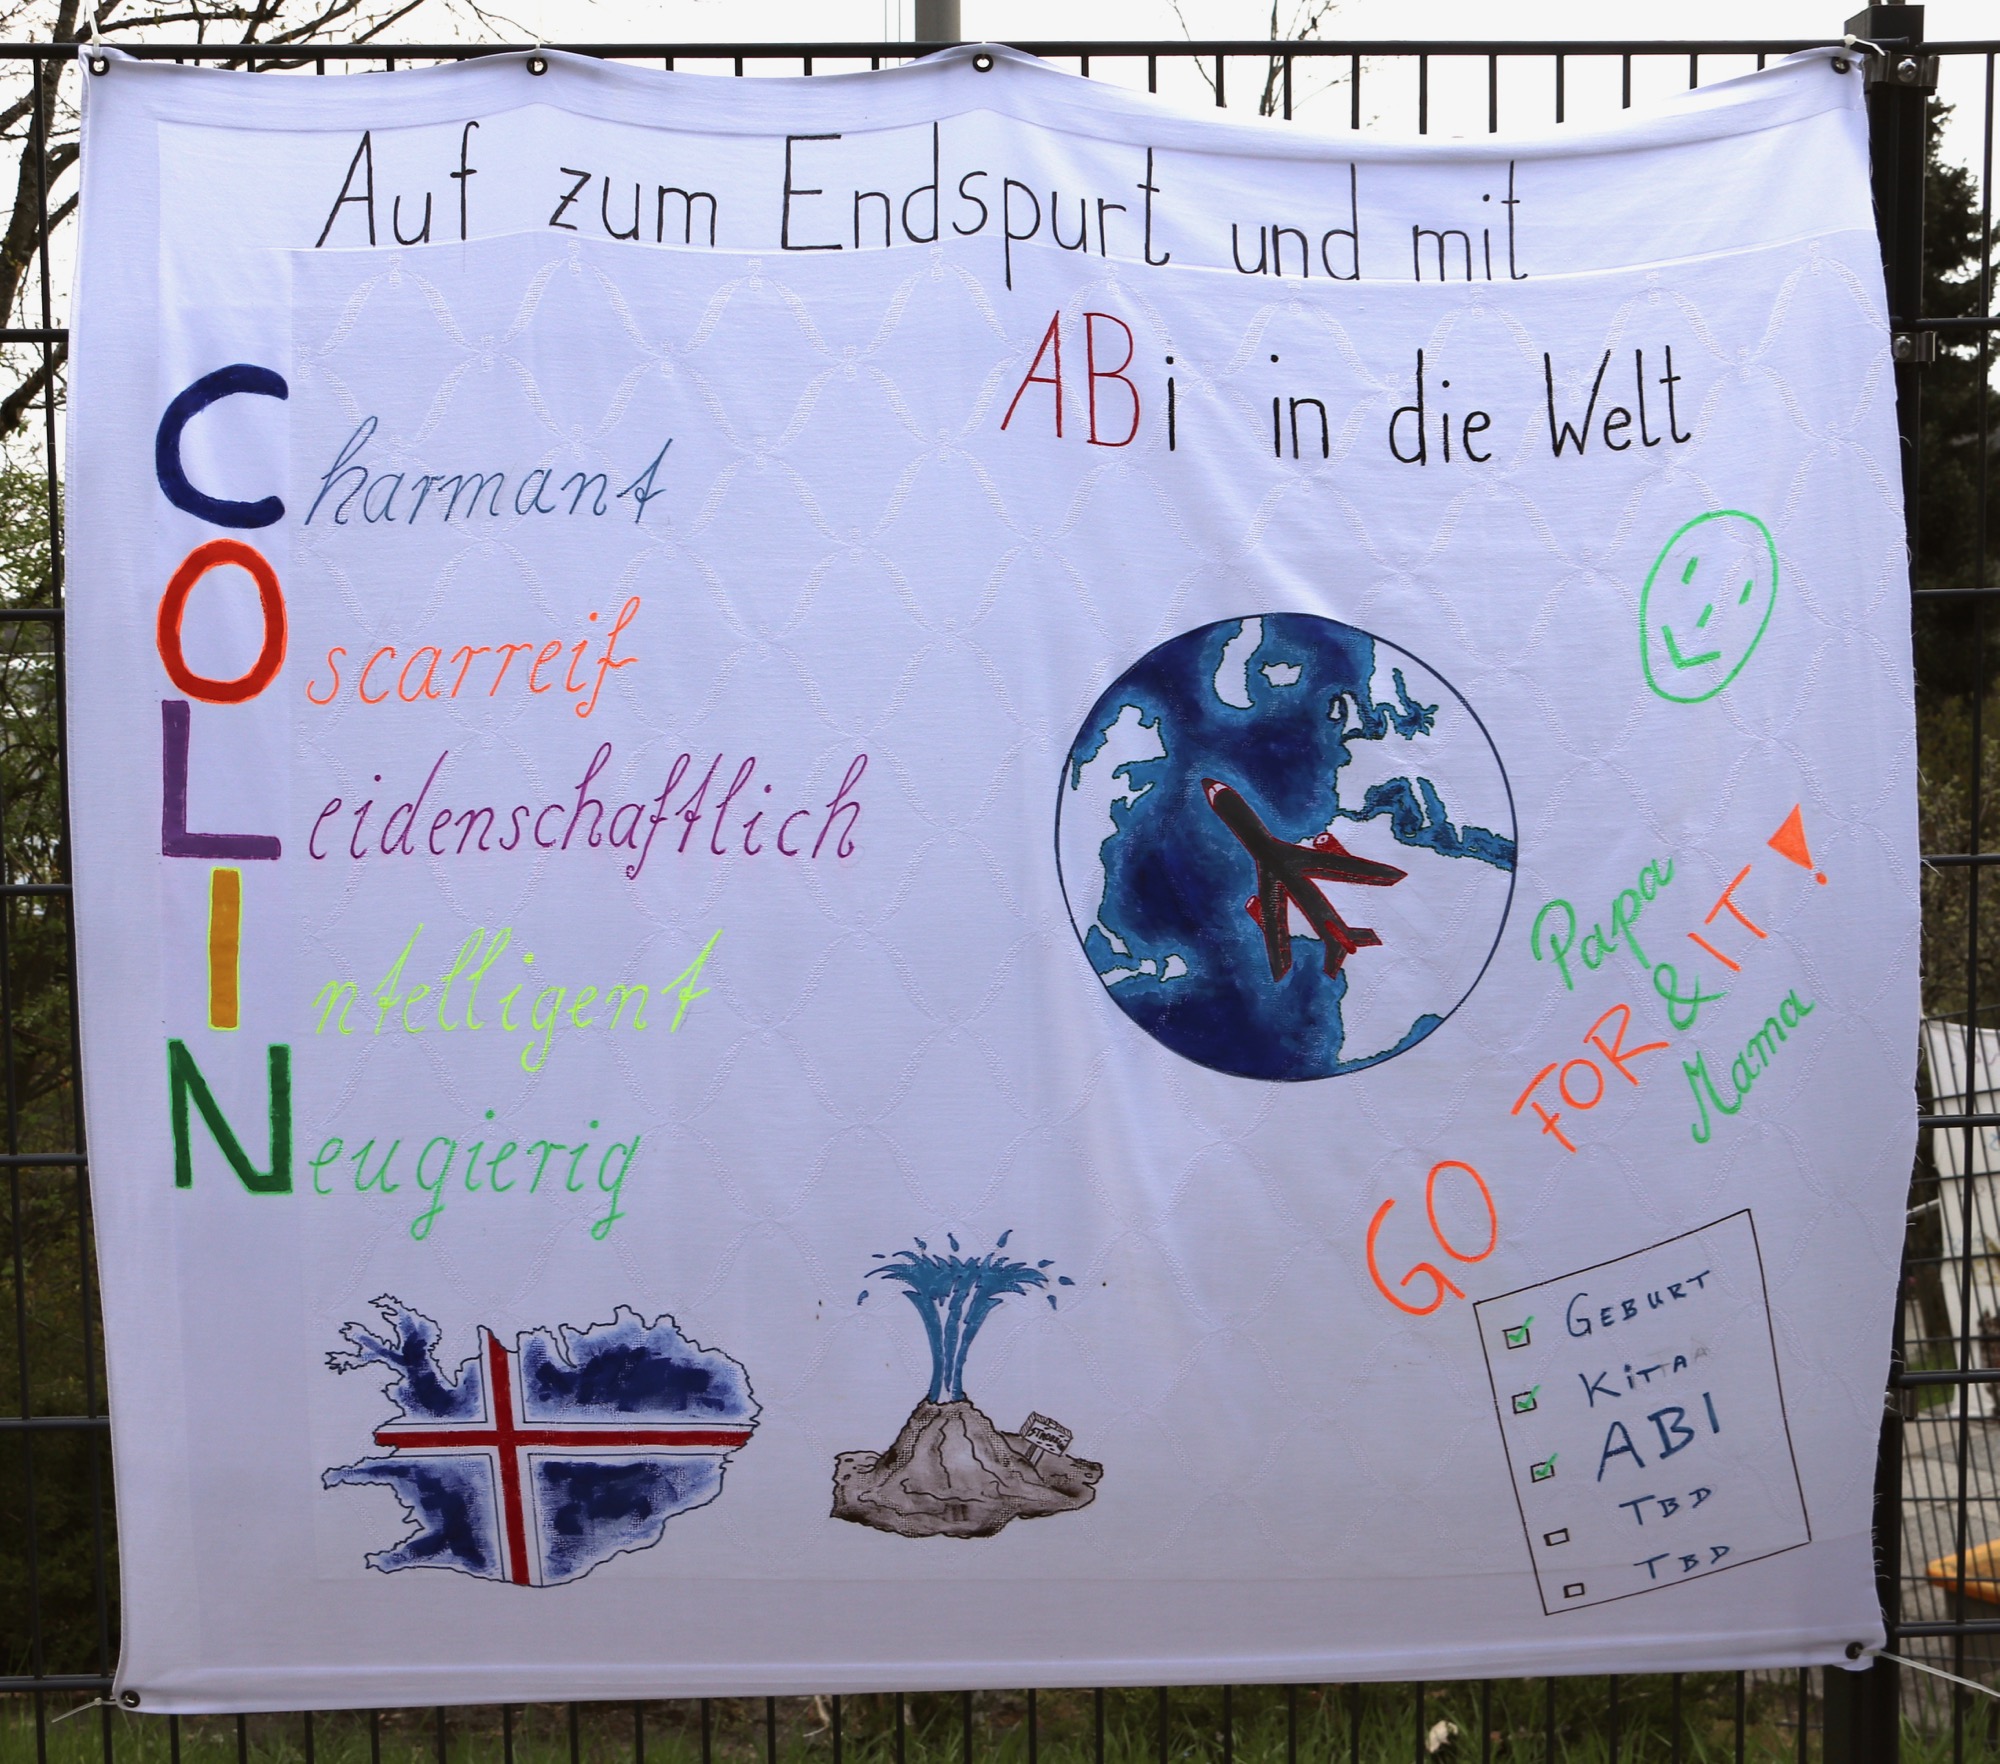 Auf zum Endspurt und mit
ABi in die Welt
Charmant
Oscarreif
Leidenschaftlich
Intelligent
Neugierig
GO FOR IT!
Papa
&
Mama
GEBURT
KiTA
ABI
TBD
TBD